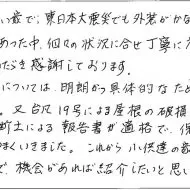 い意で、東日本大震災でも外装がか
あった中、個々の状況に合せ丁寧に
だき感謝しております。
については、明朗かつ具体的なため
、又台風19号による屋根の破損
断士による報告書が適格で、保
まくいきました。これから小供達の
で、機会があれば紹介したいと思い